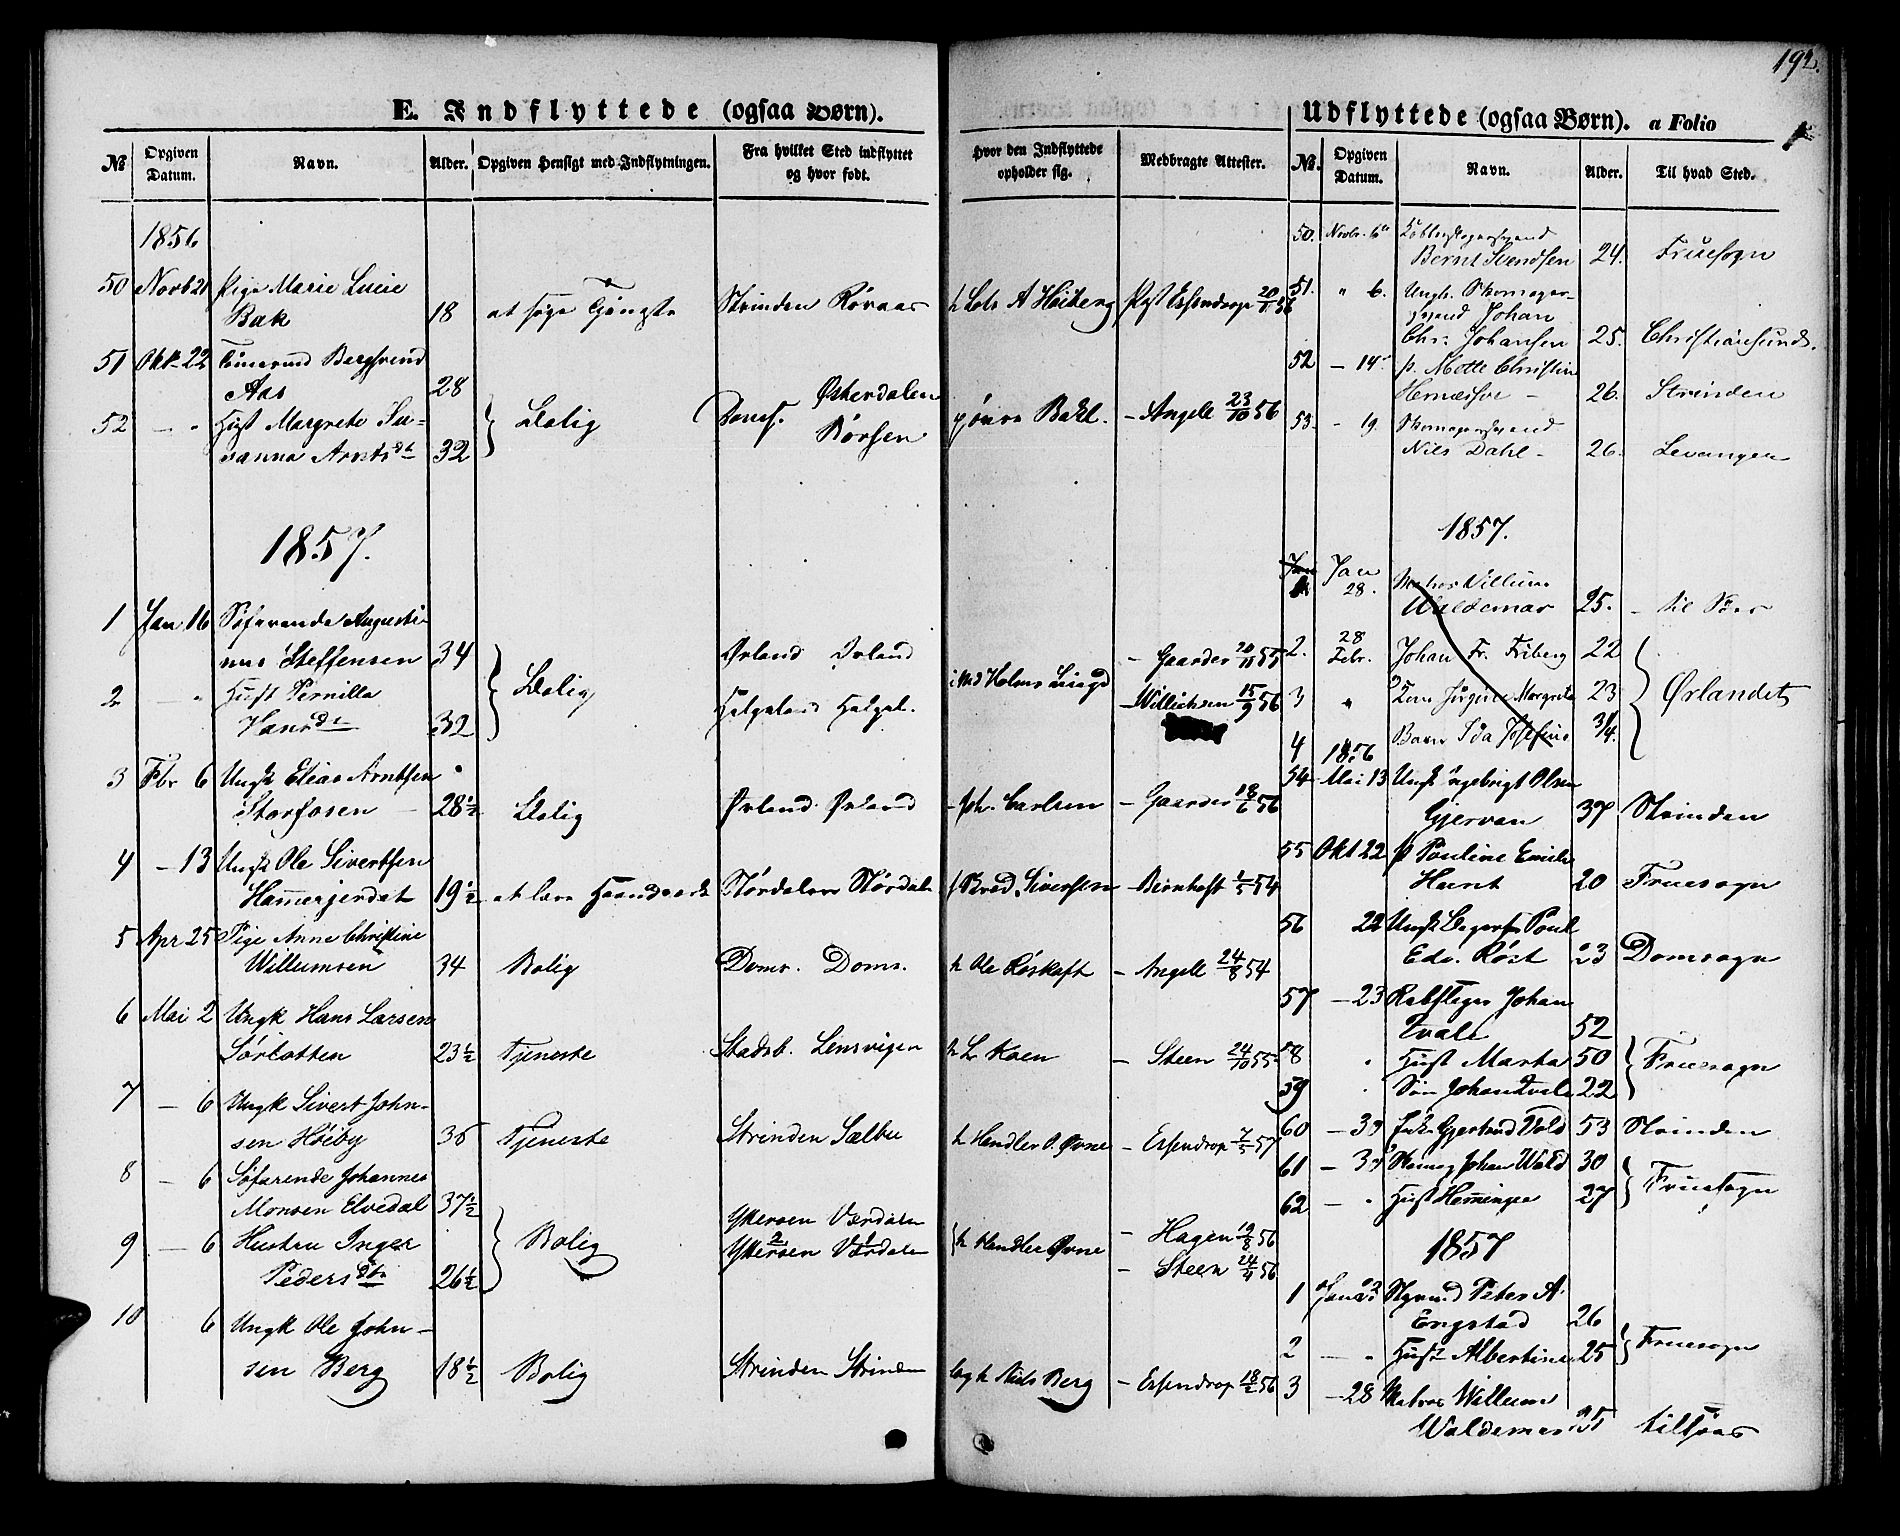 192.
E. Indflyttede (ogsaa Børn).
No Opgiven Datum. Navn. Alder. Opgiven Hensigt med Indflytningen. Fra hvilket Sted indflyttet og hvor født. Hvor den Indflyttede opholder sig. Medbragte Attester.
1856
50 Novb 21 Pige Marie Lucie
Bak 18 at søge Tjeneste Strinden Røraas h Lots A Heiberg Pst Essendrop 20/11 56
51 Okt 22 Bergsvend
Aas 28 Østerdalen
52 — " Hust Margrete Su-
sanna Arntsdtr 32 } Bolig Doms. Børsen Bakl. — Angell 23/10 56
1857.
1 Jan 16 Søfarende Augusti-
nus Steffensen 34 Ørland Ørland — Gaarder 20/11 55
2 — " Hust Pernilla } Bolig
Hansdtr 32 Helgeland Helgel. — Willichsen 15/9 56
3 Fbr 6 Ungk Elias Arntsen
Storfosen — 28½ Bolig Ørland Ørland — Joh. Carlsen — Gaarder 18/6 56
4 — 13 Ungk Ole Sivertsen
Hammergjerdet 19½ at lære Haandværk Størdalen Størdal Sivertsen — Bernhoft 1/5 54
5 Apr 25 Pige Anne Christine
Willumsen 34 Bolig Doms. Doms. h Ole Røskaft — Angell 24/8 54
6 Mai 2 Ungk Hans Larsen
Sørlotten 23½ Tjeneste Stadsb. Lensvigen h L. Koen — Steen 24/10 55
7 — 6 Ungk Sivert John-
sen Høiby 36 Tjeneste Strinden Sælbu h Handler O. Øvne — Essendrop 7/5 57
8 — 6 Søfarende Johannes
Monsen Elvedal 37½ Ytterøen Værdalen — Hagen 19/8 56
9 — 6 Hustru Inger } Bolig Ytterøen Værdalen h Handler Øvne
Pedersdtr 26½ — Steen 24/4 56
10 6 Ungk Ole John-
sen Berg 18½ Bolig Strinden Strinden Niels Berg — Essendrop 18/2 56
Udflyttede (ogsaa Børn). a Folio
No. Opgiven Datum. Navn. Alder. Til hvad Sted.
50. Novbr. 6 Kobberslagersvend
Bernt Svendsen 24. Fruesogn
51. " 6. Ungk. Skomager-
svend Johan
Chr. Johansen 25. Christiansund.
52 — 14 p. Mette Christine
Hernæsføe — 26. Strinden
53. — 19. Skomagersvend
Nils Dahl — 26. Levanger
1857.
1. Jan
28. Matros Villum
Waldemar 25. — til Søes
2. 28 Febr. Johan Fr. Friberg 22
3 " Kone Jørgine Margrete 23 } Ørlandet
4 Barn Ida Josefine 3/4.
1856
54 — Mai 13 Ungk Ingebrigt Olsen
Gjervan 37 Strinden
55 Okt 22 p Pauline Emilie
Hunt 20 Fruesogn
56 22 Ungk Poul
Edv. Røst 23 Domsogn
57 — 23 Rebslager Johan
Tvale 52
58 " Hust Marta 50 } Fruesogn
59 " Søn Johan Tvale 22
60 — 30 Enke Gjertrud Vold 53 Strinden
61 — 30 Skomag Johan Wold 30 } Fruesogn
62 — " Hust Hemingea 27
1857
1 Styrmd Peter A.
Engstad 26
2 — " Hust Albertine 25 } Fruesogn
3 — 28 Matros Willum
Waldemar 25 tilsøes